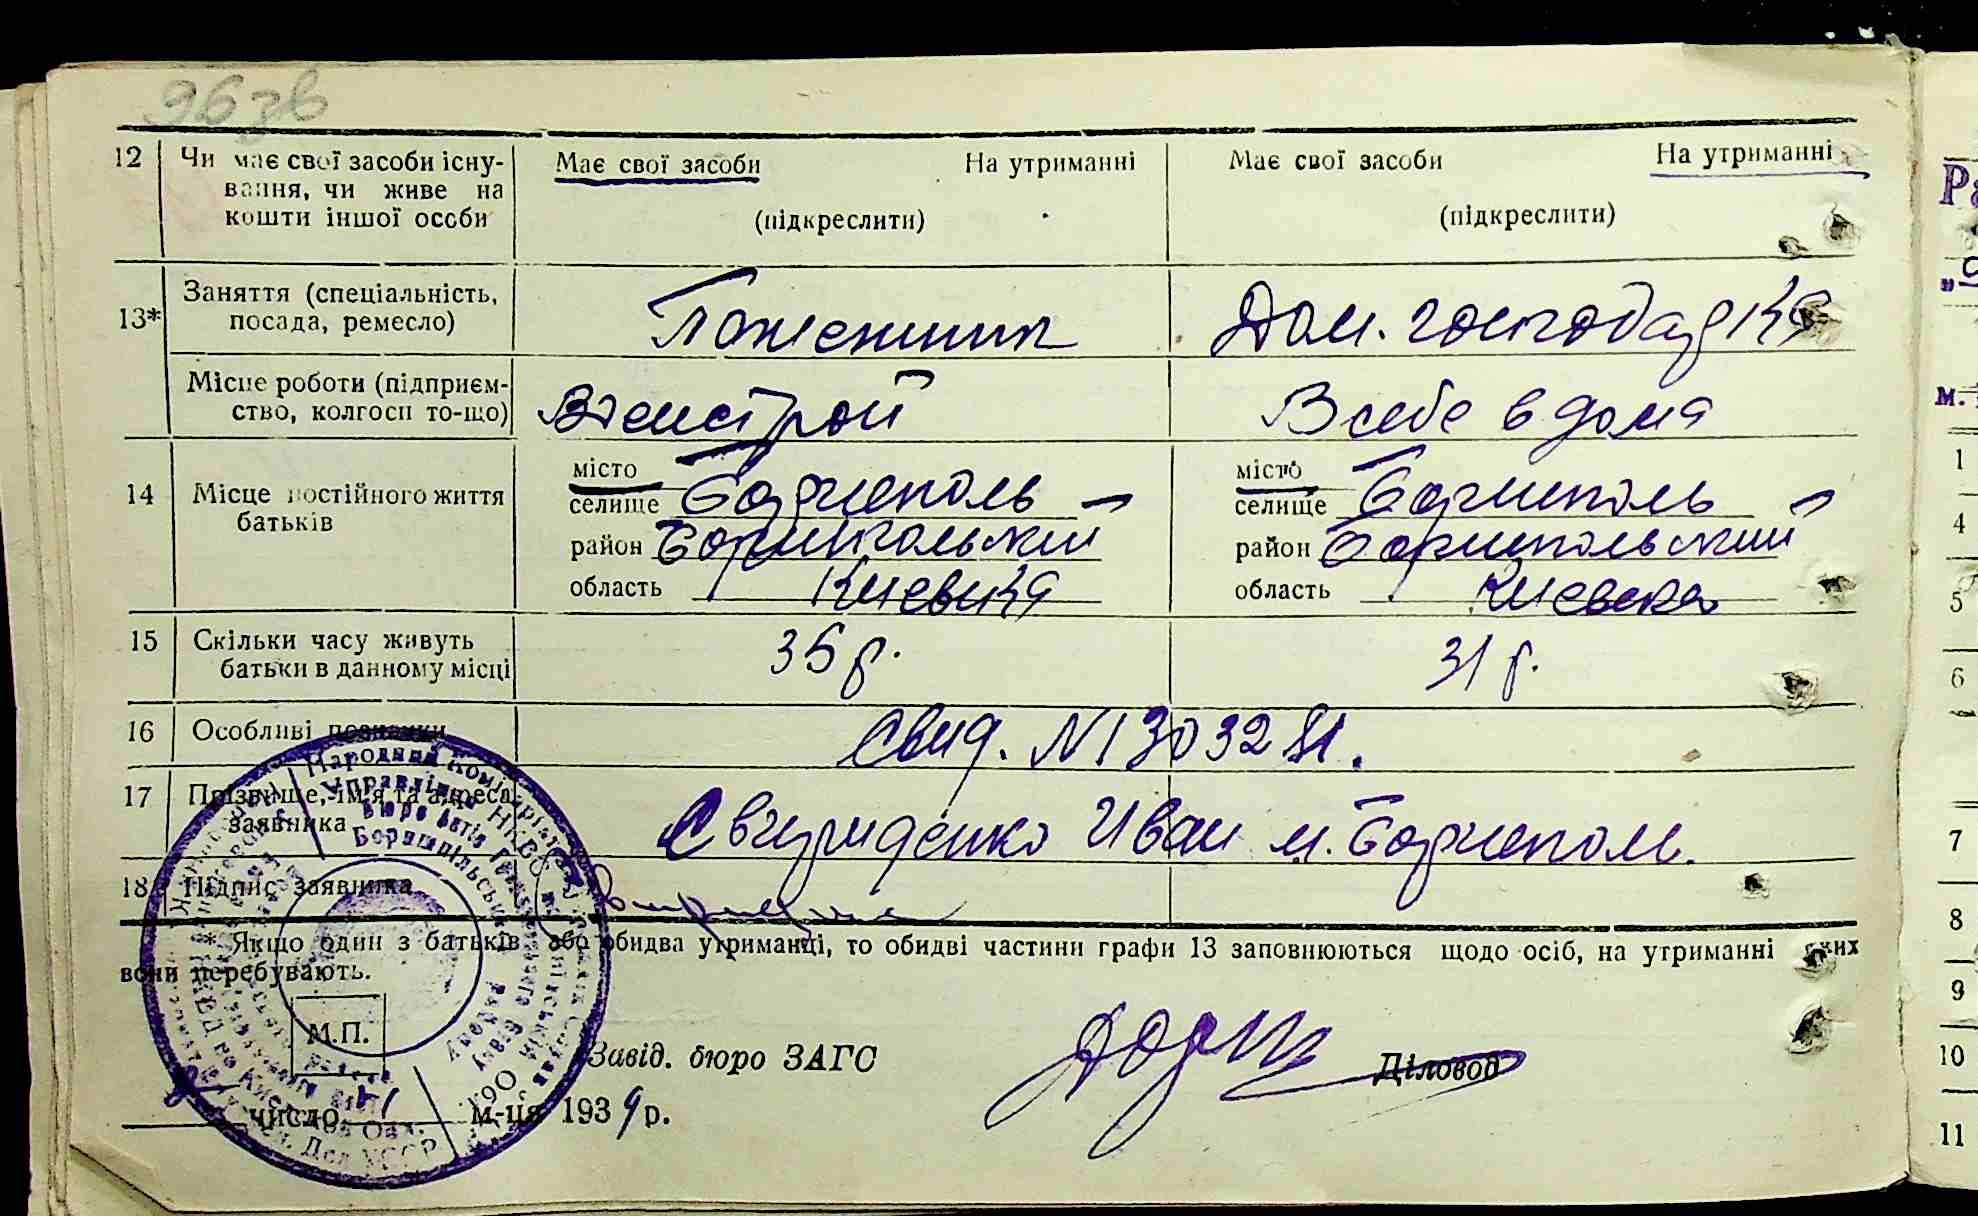 96 зв
12 Чи має свої засоби існу-
вання, чи живе на
кошти іншої особи
Має свої засоби На утриманні
(підкреслити)
Має свої засоби На утриманні
(підкреслити)
13* Заняття (спеціальність,
посада, ремесло)
Пожежник
Дом. господарка
Місце роботи (підприєм-
ство, колгосп то-що)
В себе в дома
14 Місце постійного життя
батьків
місто
селище Бориспольський
район Бориспольський
область Києвска
місто
селище Борисполь
район Бориспольський
область Києвска
15 Скільки часу живуть
батьки в данному місці
35 р.
31 р.
16 Особливі познавки
Свид. №
17 Прізвище, ім'я та адреса
заявника
Иван м. Борисполь.
18 Підпис заявника
* Якщо один з батьків або обидва утриманці, то обидві частини графи 13 заповнюються щодо осіб, на утриманні яких
вони перебувають.
М.П.
Завід. бюро ЗАГС
Діловод
число м-ця 1939 р.
Народний Коміс
Управління НКВС
Бюро Актів
Бориспільськ
1
4
5
6
7
8
9
10
11